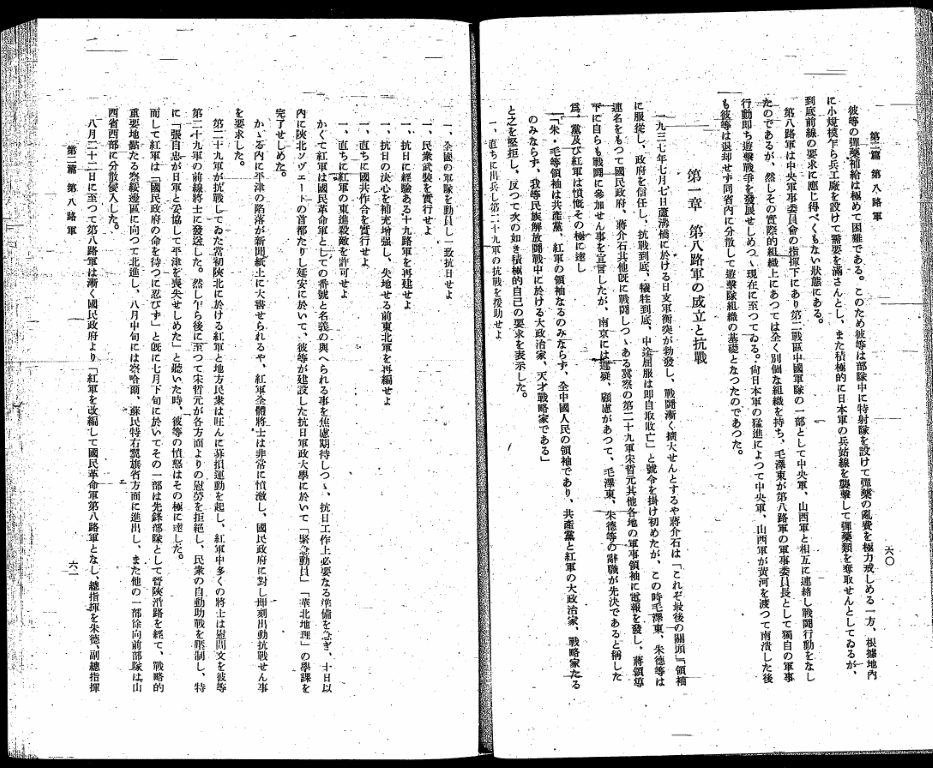 第二篇 第八路軍
六〇
彼等の彈藥補給は極めて困難である。このため彼等は部隊中に特射隊を設けて彈藥の亂費を極力戒しめる一方、根據地內
に小規模乍ら兵工廠を設けて需要を滿さんとし、また積極的に日本軍の兵站線を襲擊して彈藥類を奪取せんとしてゐるが、
到底前線の要求に應じ得べくもない狀態にある。
第八路軍は中央軍事委員會の指揮下にあり第二戰區中國軍隊の一部として中央軍、山西軍と相互に連絡し戰鬪行動をなし
たのであるが、然しその實際的組織上にあつては全く別個な組織を持ち、毛澤東が第八路軍の軍事委員長として獨自の軍事
行動卽ち遊擊戰爭を發展せしめつゝ現在に至つてゐる。尙日本軍の猛進によつて中央軍、山西軍が黃河を渡つて南潰した後
も彼等は退却せず同省內に分散して遊擊隊組織の基礎となつたのであつた。
第一章 第八路軍の成立と抗戰
一九三七年七月七日蘆溝橋に於ける日支軍衝突が勃發し、戰鬪漸く擴大せんとするや蔣介石は「これぞ最後の關頭『領袖
に服從し、政府を信任し、抗戰到底、犧牲到底、中途屈服は卽自取敗亡」と號令を掛け初めたが、この時毛澤東、朱德等は
連名をもつて國民政府、蔣介石其他旣に戰鬪しつゝある冀察の第二十九軍宋哲元其他各地の軍事領袖に電報を發し、蔣領導
下に自らも戰鬪に參加せん事を宣言したが、南京には遲疑、顧慮があつて、毛澤東、朱德等の辭職が先決であると稱した
爲、黨及び紅軍は憤慨その極に達し
「朱、毛等領袖は共產黨、紅軍の領袖なるのみならず、全中國人民の領袖であり、共產黨と紅軍の大政治家、戰略家たる
のみならず、我等民族解放鬪爭中に於ける大政治家、天才戰略家である」
と之を堅拒し、反つて次の如き積極的自己の要求を表示した。
一、直ちに出兵し第二十九軍の抗戰を援助せよ
一、全國の軍隊を動員し一致抗日せよ
一、民衆武裝を實行せよ
一、抗日に經驗ある十九路軍を再建せよ
一、抗日の決心を補充增强し、失地せる前東北軍を再編せよ
一、直ちに國共作合を實行せよ
一、直ちに紅軍の東進殺敵を許可せよ
かくて紅軍は國民革命軍としての番號と名義の與へられる事を焦慮期待しつゝ、抗日工作上必要なる準備を急ぎ、十日以
內に陝北ソヴェートの首都たりし延安に於いて、彼等が建設した抗日軍政大學に於いて「緊急動員」「華北地理」の學課を
完了せしめた。
かゝる內に平津の陷落が新聞紙上に大書せられるや、紅軍全體將士は非常に憤激し、國民政府に對し卽刻出動抗戰せん事
を要求した。
第二十九軍が抗戰してゐた當初陝北に於ける紅軍と地方民衆は旺んに募捐運動を起し、紅軍中多くの將士は慰問文を彼等
第二十九軍の前線將士に發送した。然し乍ら後に至つて宋哲元が各方面よりの慰勞を拒絕し、民衆の自動助戰を壓制し、特
に「張自忠が日軍と妥協して平津を喪失せしめた」と聽いた時、彼等の憤怒はその極に達した。
而して紅軍は「國民政府の命を待つに忍びず」と旣に七月下旬に於いてその一部は先鋒部隊として晉陝沿路を經て、戰略的
重要地點たる察綏邊區に向つて北進し、八月中旬には察哈爾、蘇民特右翼旗省方面に進出し、また他の一部徐向前部隊は山
西省西部に分散侵入した。
八月二十二日に至つて第八路軍は漸く國民政府より「紅軍を改編して國民革命軍第八路軍となし、總指揮を朱德、副總指揮
第二篇 第八路軍
六一